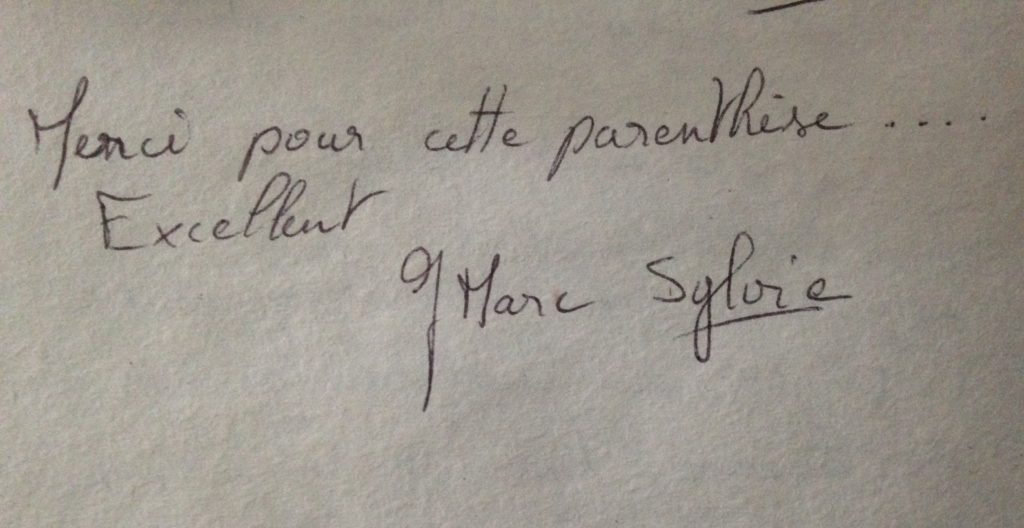 Merci pour cette parenthèse .....
Excellent
J Marc Sylvie